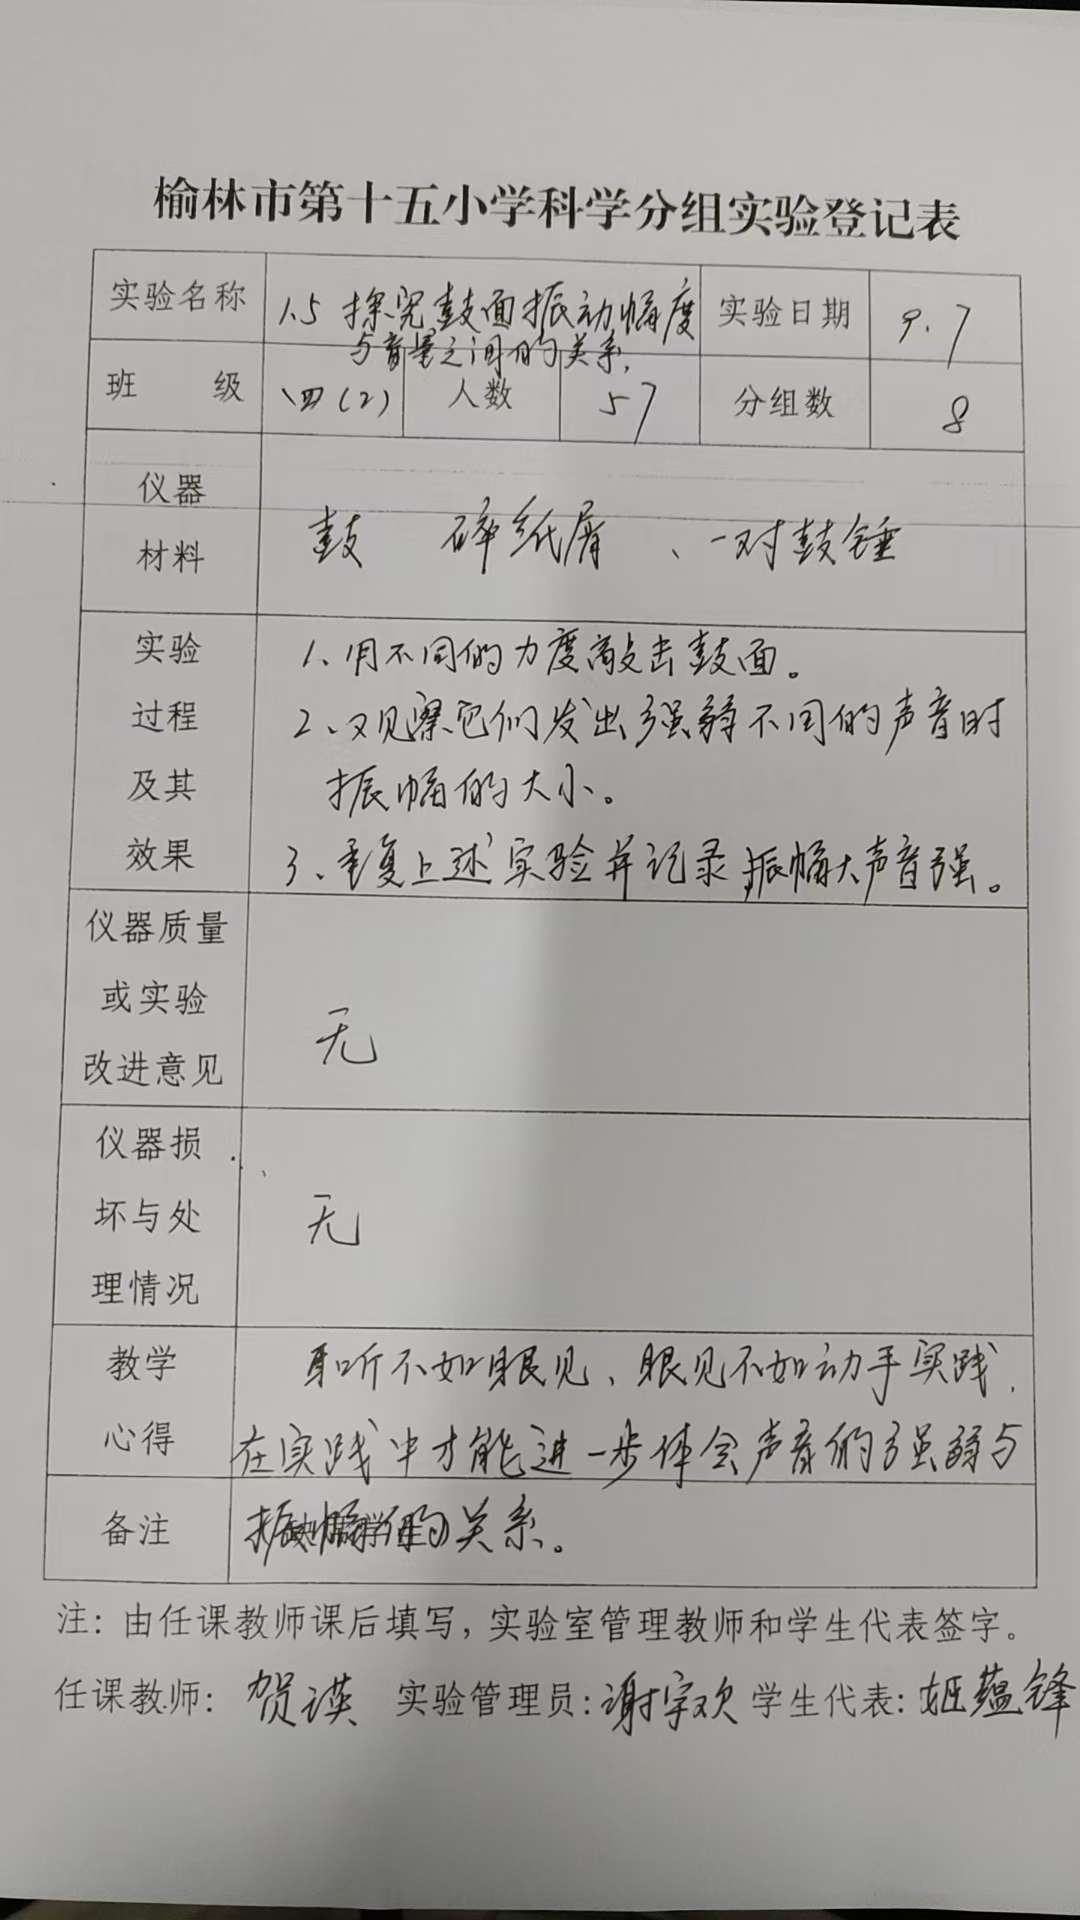 榆林市第十五小学科学分组实验登记表
实验名称 1.5 探究鼓面振动幅度 实验日期 9.7
与音量之间的关系.
班 级 四(2) 人数 57 分组数 8
仪器
材料
鼓 碎纸屑 、一对鼓锤
实验 1、用不同的力度敲击鼓面。
过程 2、观察它们发出强弱不同的声音时
及其 振幅的大小。
效果 3、重复上述实验并记录,振幅大声音强。
仪器质量
或实验
改进意见
无
仪器损
坏与处
理情况
无
教学 耳听不如眼见、眼见不如动手实践.
心得 在实践中才能进一步体会声音的强弱与
备注 振幅的关系。
注：由任课教师课后填写，实验室管理教师和学生代表签字。
任课教师：贺谈 实验管理员：谢宇欢 学生代表：姬蕴锋